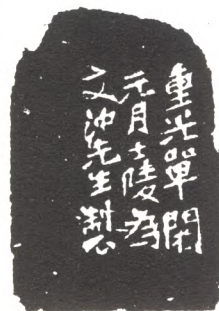 重光單閼
元月士陵為
文沖先生製